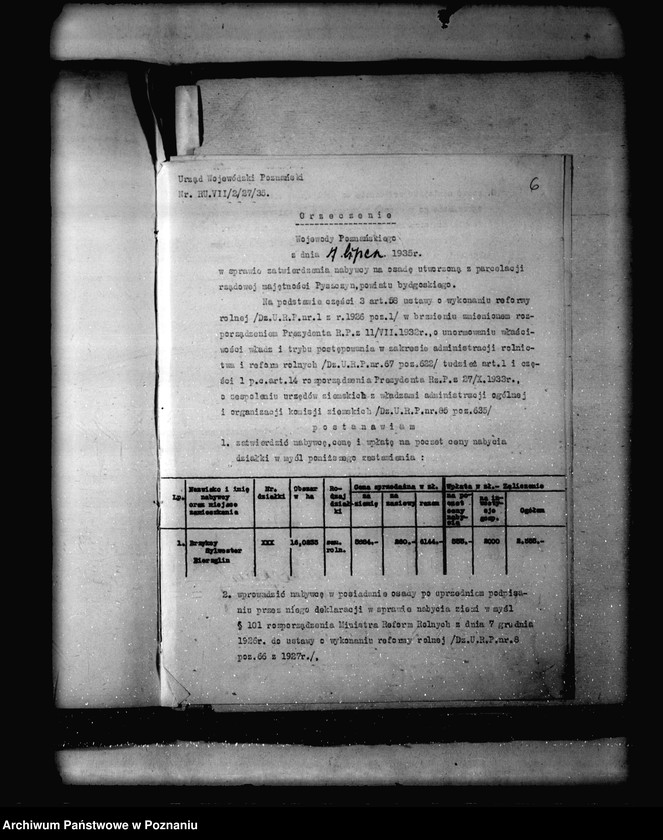 Urząd Wojewódzki Poznański
Nr. RU.VII/2/27/35.
6
Orzeczenie
Wojewody Poznańskiego
z dnia lipca 1935r.
w sprawie zatwierdzenia nabywcy na osadę utworzoną z parcelacji
rządowej majętności Pyszczyn,powiatu bydgoskiego.
Na podstawie części 3 art.58 ustawy o wykonaniu reformy
rolnej /Dz.U.R.P.nr.1 z r.1926 poz.1/ w brzmieniu zmienionem roz-
porządzeniem Prezydenta R.P.z 11/VII.1932r.,o unormowaniu właści-
wości władz i trybu postępowania w zakresie administracji rolnic-
twa i reform rolnych /Dz.U.R.P.nr.67 poz.622/ tudzież art.1 i czę-
ści 1 p.c.art.14 rozporządzenia Prezydenta Rz.P.z 27/X.1933r.,
o zespoleniu urzędów ziemskich z władzami administracji ogólnej
i organizacji komisji ziemskich /Dz.U.R.P.nr.85 poz.635/
postanawiam
1. zatwierdzić nabywcę,cenę i wpłatę na poczet ceny nabycia
działki w myśl poniższego zestawienia :
Lp. Nazwisko i imię nabywcy oraz miejsce zamieszkania Nr. działki Obszar w ha Ro-dzaj dział-ki Cena sprzedażna w zł. za ziemię za zasiewy razem Wpłata w zł.- Zaliczenie na po-czet ceny naby-cia na in-westy-cje gosp. Ogółem
1. Sylwester XXX sam. roln. 260.- 6144.- 2000
2. wprowadzić nabywcę w posiadanie osady po uprzedniem podpisa-
niu przez niego deklaracji w sprawie nabycia ziemi w myśl
§ 101 rozporządzenia Ministra Reform Rolnych z dnia 7 grudnia
1926r. do ustawy o wykonaniu reformy rolnej /Dz.U.R.P.nr.8
poz.66 z 1927r./.
Archiwum Państwowe w Poznaniu